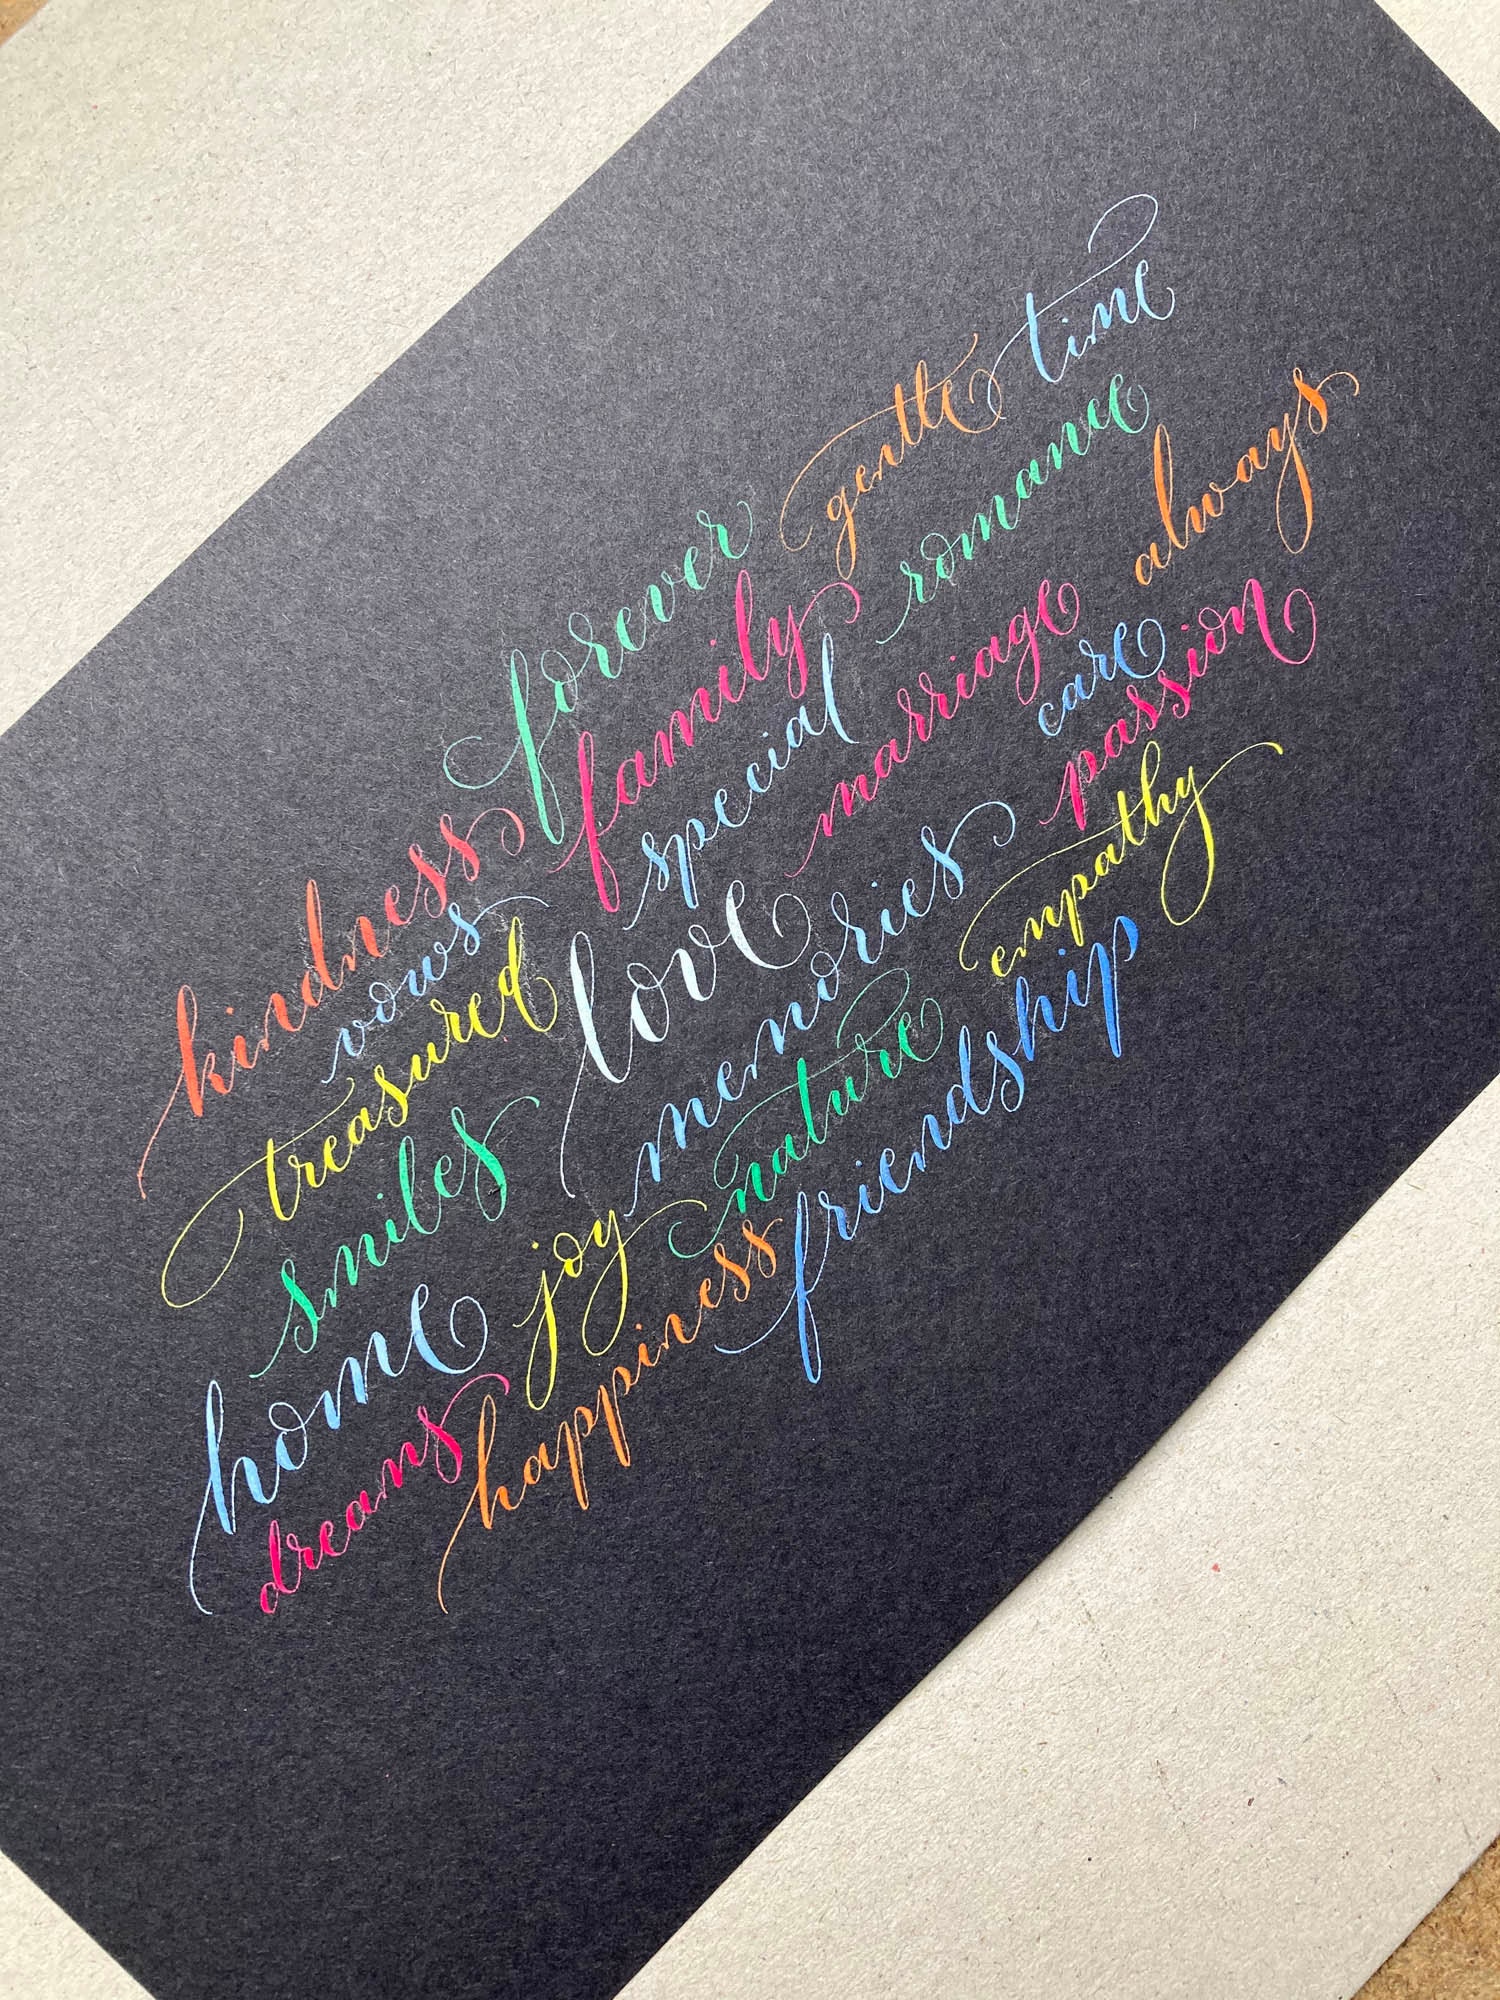 forever gentle time
kindness family romance always
vows special marriage care
treasured love memories passion
smiles nature empathy
home joy friendship
dreams happiness